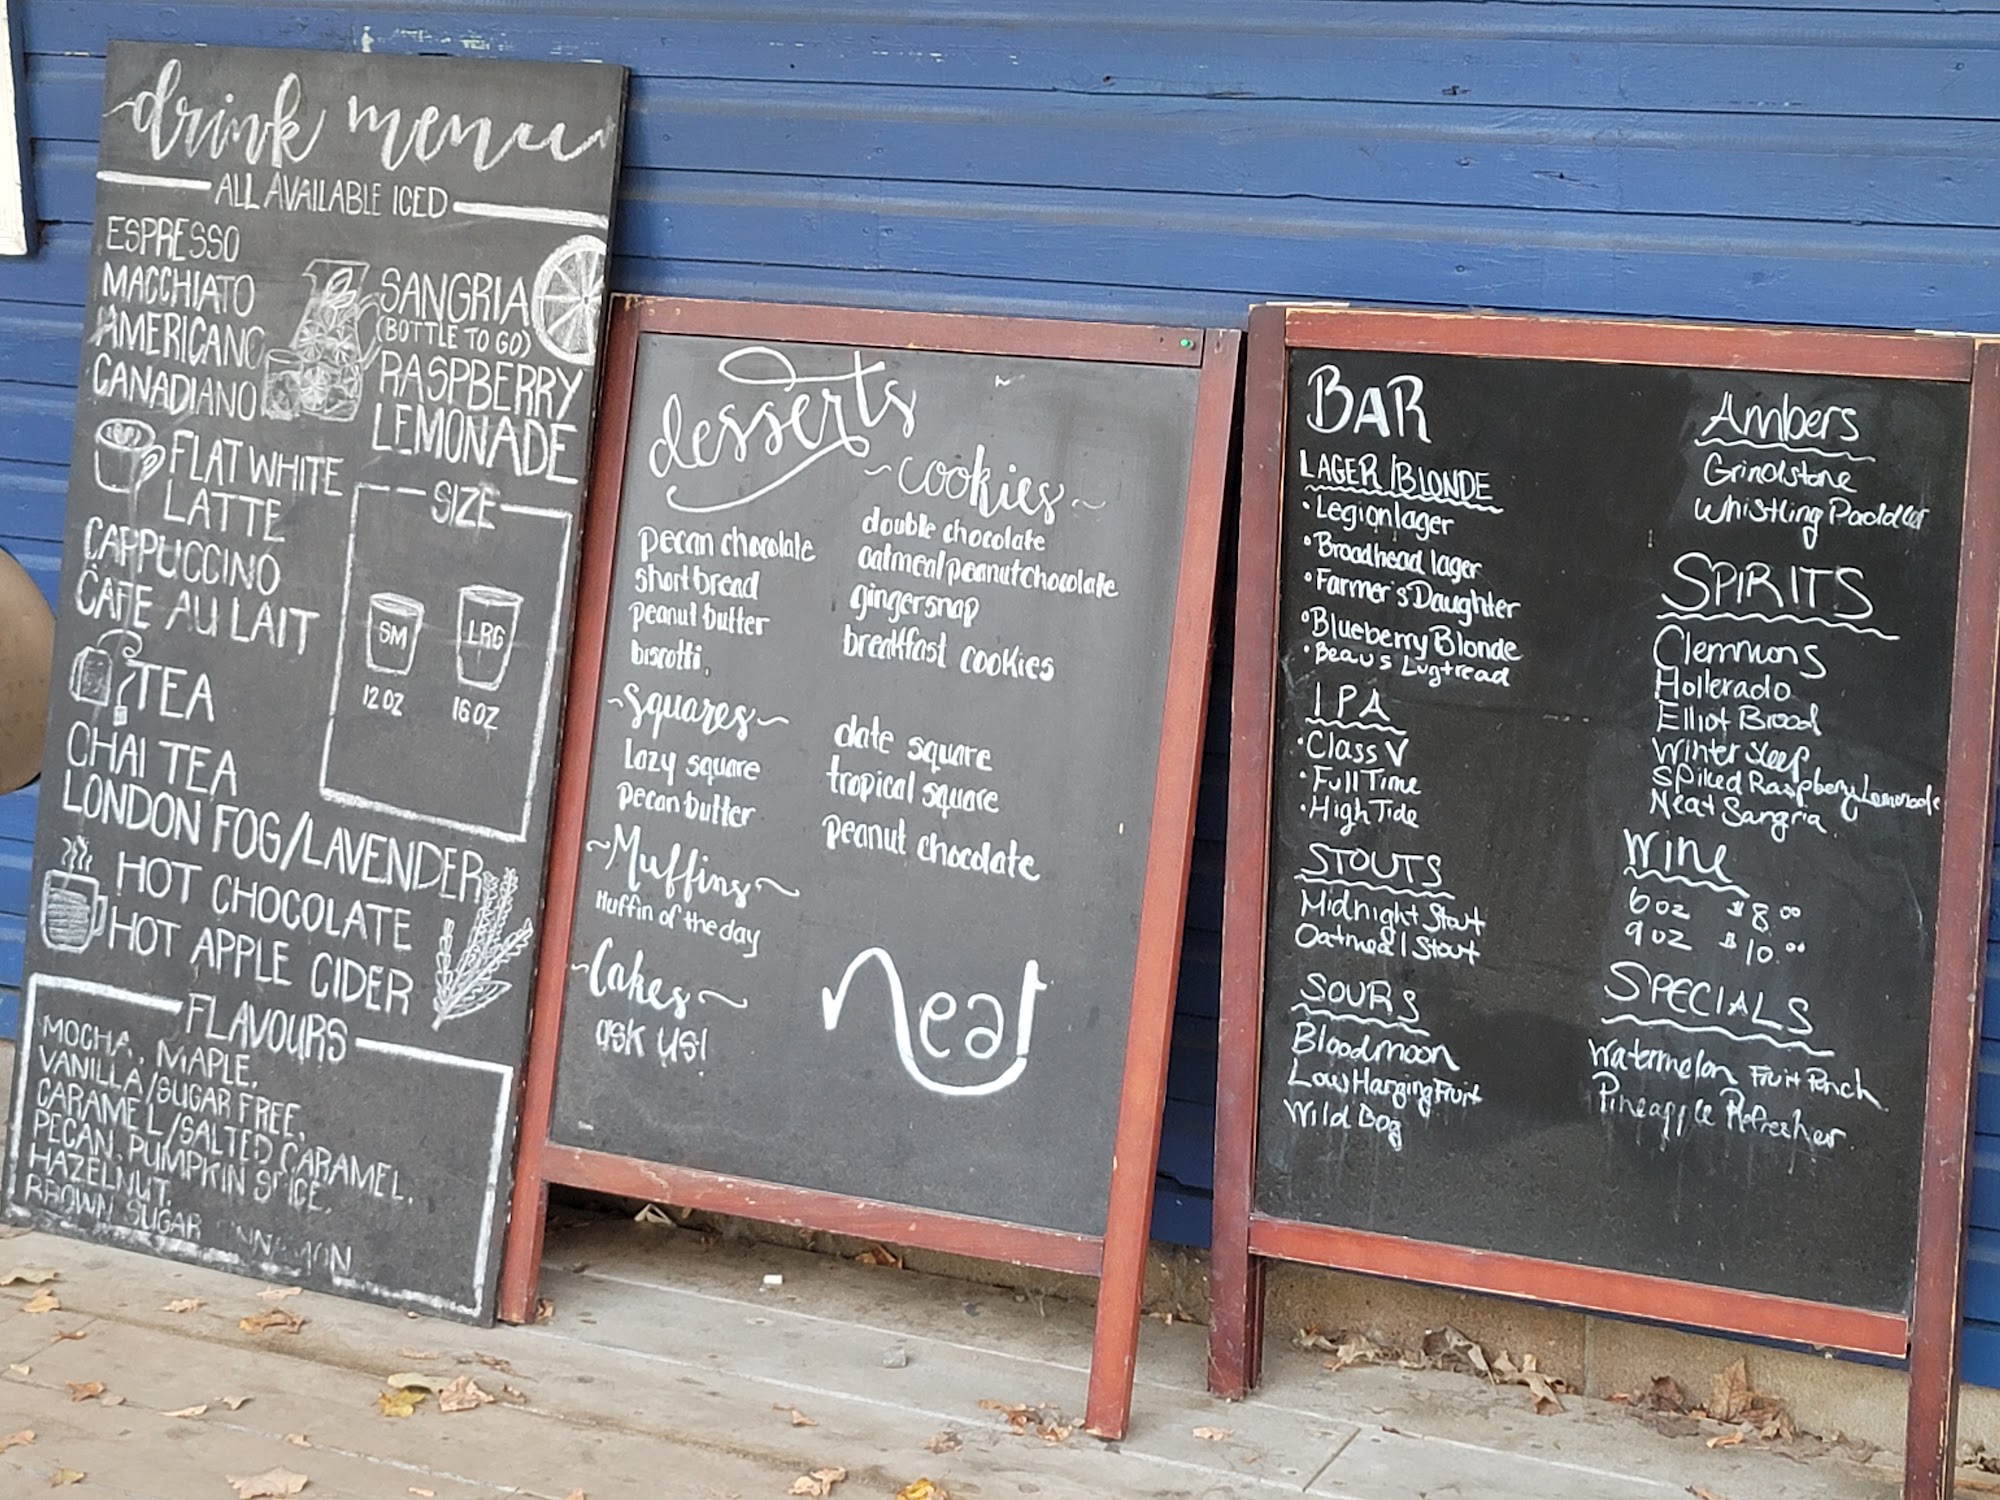 drink menu
ALL AVAILABLE ICED
ESPRESSO
MACCHIATO
AMERICANO
CANADIANO
FLAT WHITE
LATTE
CAPPUCCINO
CAFE AU LAIT
TEA
CHAI TEA
LONDON FOG/LAVENDER
HOT CHOCOLATE
HOT APPLE CIDER
SANGRIA
(BOTTLE TO GO)
RASPBERRY
LEMONADE
SIZE
SM
LRG
12 OZ
16 OZ
FLAVOURS
MOCHA, MAPLE,
VANILLA/SUGAR FREE,
CARAMEL/SALTED CARAMEL,
PECAN, PUMPKIN SPICE,
HAZELNUT,
BROWN SUGAR
desserts
~cookies~
pecan chocolate
short bread
peanut butter
biscotti,
double chocolate
oatmeal peanut chocolate
gingersnap
breakfast cookies
~Squares~
lazy square
pecan butter
date square
tropical square
peanut chocolate
~Muffins~
Muffin of the day
~Cakes~
ask us!
neat
BAR
LAGER/BLONDE
• Legion lager
• Broadhead lager
• Farmer's Daughter
• Blueberry Blonde
• Beau's Lugtread
IPA
• Class V
• Full Time
• High Tide
STOUTS
Midnight Stout
Oatmeal Stout
SOURS
Bloodmoon
Low Hanging Fruit
Wild Dog
Ambers
Grindstone
Whistling Paddler
SPIRITS
Clemmons
Hollerado
Elliot Brood
Winter Sleep
Spiked Raspberry Lemonade
Neat Sangria
Wine
6 oz $8.00
9 oz $10.00
SPECIALS
Watermelon Fruit Punch
Pineapple Refresher